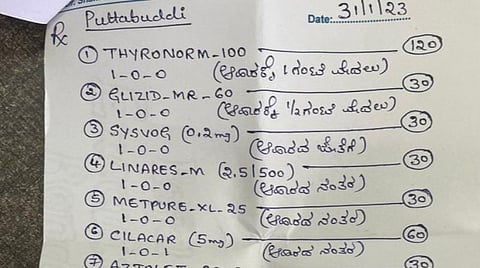 Rx Puttabuddi Date: 31/1/23
① THYRONORM-100 120
1-0-0 (ಆಹಾರಕ್ಕೆ 1 ಗಂಟೆ ಮೊದಲು)
② GLIZID-MR-60 30
1-0-0 (ಆಹಾರಕ್ಕೆ 1/2 ಗಂಟೆ ಮೊದಲು)
③ SYSVOG (0.2mg) 30
1-0-0 (ಆಹಾರದ ಜೊತೆಗೆ)
④ LINARES-M (2.5/500) 30
1-0-0 (ಆಹಾರದ ನಂತರ)
⑤ METPURE-XL-25 30
1-0-0 (ಆಹಾರದ ನಂತರ)
⑥ CILACAR (5mg) 60
1-0-1 (ಆಹಾರದ ನಂತರ)
⑦ 30